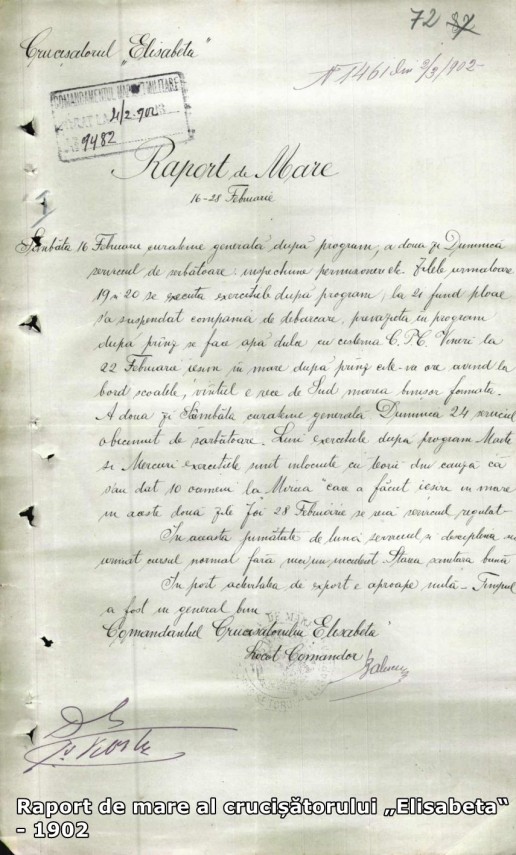 72 37
Crucișatorul „Elisabeta"
N 1461 din 3/3/902
COMANDAMENTUL MARINEI MILITARE
4/2-902
9482
Raport de Mare
16-28 Februarie
Sâmbăta 16 Februarie curatenie generală după program, a doua zi Duminică
serviciul de serbătoare: inspectiune permisionari etc. Zilele urmatoare
19 și 20 se executa exercitiile după program, la 21 fiind ploae
s'a suspendat compania de debarcare, prevazuta in program
după prînz se face apă dulce cu cisterna C.P.C. Vineri
22 Februarie iesim in mare după prînz câte-va ore avind la
bord scoalele, vîntul e rece de Sud marea binisor formata.
A doua zi Sâmbăta curatenie generală Duminică 24 serviciul
obicinuit de sarbătoare. Luni exercitiile dupa program Marti
si Mercuri exercitiile sunt inlocuite cu teorii din cauză că
s'au dat 10 oameni la „Mircea" care a făcut iesire in mare
in aceste două zile Joi 28 Februarie se reia serviciul regulat-
In aceasta jumătate de lună serviciul și disciplina au
urmat cursul normal fară nici un incident Starea sanitara bună
In port activitatea de export e aproape nulă - Timpul
a fost in general bun
Comandantul Crucisatorului Elisabeta
Locot Comandor
Raport de mare al crucișătorului „Elisabeta"
- 1902